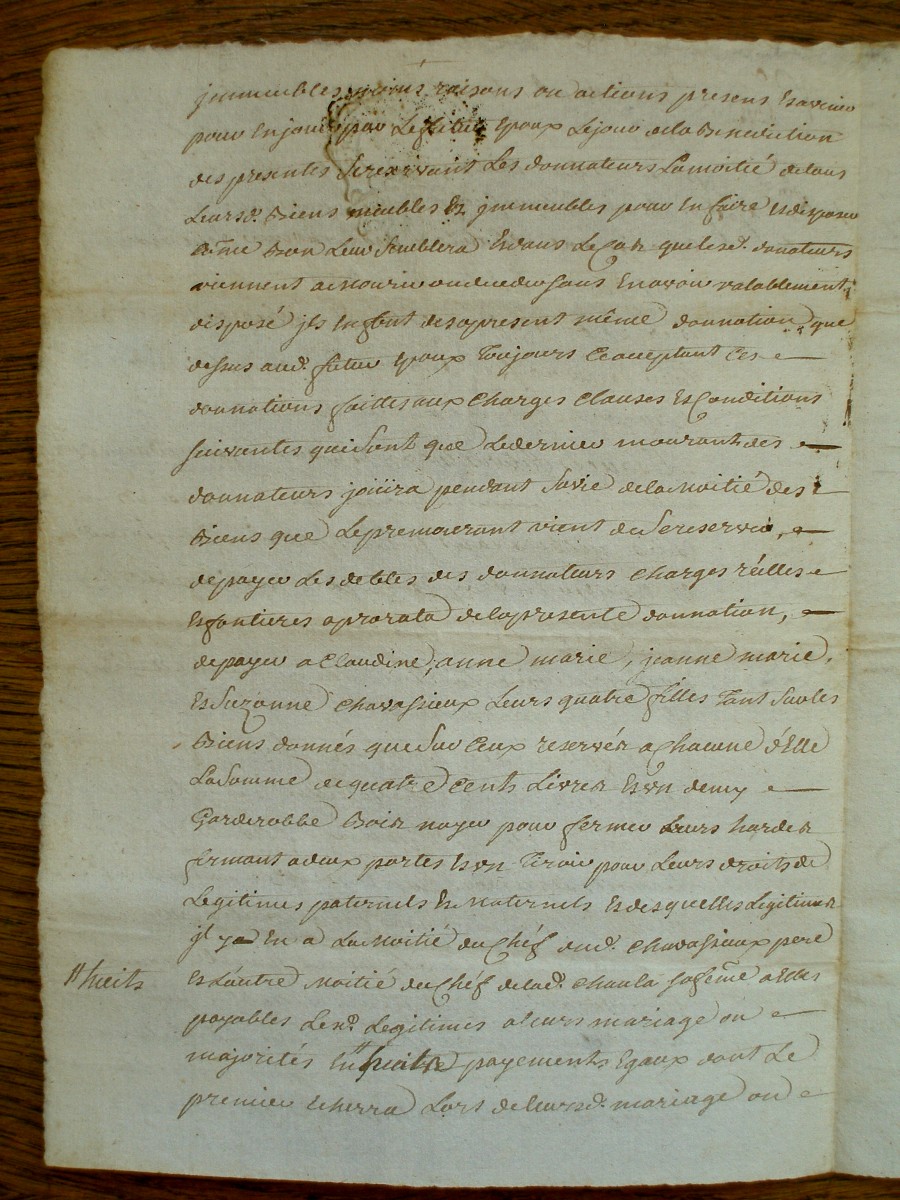 jmmeubles noms raisons ou actions presens Esavenir
pour En jouir par Ledit futur Epoux Lejour delaBenediction
des presentes Sereservant Les donnateurs Lamoitié detous
Leursd. Biens meubles Es jmmeubles pour En faire Esdisposer
Comme Bon Leur Semblera Esdans Lecas quelesd. donateurs
viennent amourir oudeceder Sans Enavoir valablement
disposé jls Enfont desapresent même donnation que
dessus aud. futur Epoux Toujours Ecacceptant Ces
donnations faittes aux Charges Clauses EsConditions
Suivantes quiSont que Ledernier mourant des
donnateurs joüira pendant Savie delaMoitié des
Biens que Lepremourant vient deSereserver,
depayer Les debtes des donnateurs Charges réelles
Esfontieres aprorata delapresente donnation,
depayer a Claudine, anne marie, jeanne marie,
EsSuzanne Chavassieux Leurs quatre filles Tant Surles
Biens donnés queSur Ceux reservés a Chacune d'Elle
LaSomme de quatre Cents Livres Esun demy
Garderobbe Bois noyer pour fermer Leurs hardes
fermant adeux portes Esun Tiroir pour Leurs droits de
Legitimes paternels Es Maternels Esdesquelles Legitimes
jl y En a LaMoitié duChéf dud. Chavassieux pere
EsLautre Moitié duChéf delad. Chaula Safeme a Elles
payables Lesd. Legitimes aleurs mariage ou
majorités En huits payements Egaux dont Le
premier Echerra Lors deleursd. mariage ou
huits